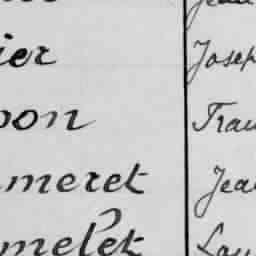 ier Josep
on Fran
meret Jea
melet Lou